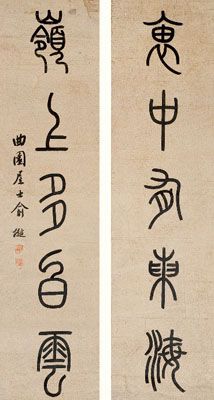 袖中有東海
嶺上多白雲
曲園居士俞樾